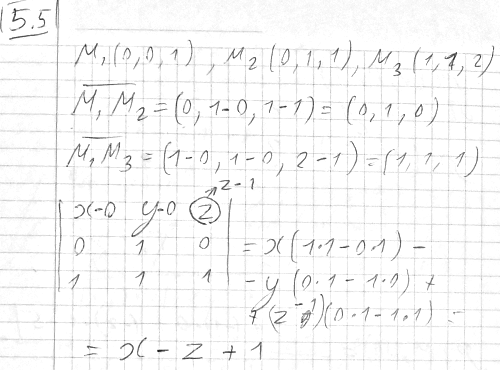 5.5
M₁(0,0,1), M₂(0,1,1), M₃(1,1,2)
M₁M₂ = (0, 1-0, 1-1) = (0, 1, 0)
M₁M₃ = (1-0, 1-0, 2-1) = (1, 1, 1)
z-1
| x-0 y-0 z |
| 0 1 0 | = x(1·1-0·1) -
| 1 1 1 | - y(0·1-1·0) +
+ (z-1)(0·1-1·1) =
= x - z + 1